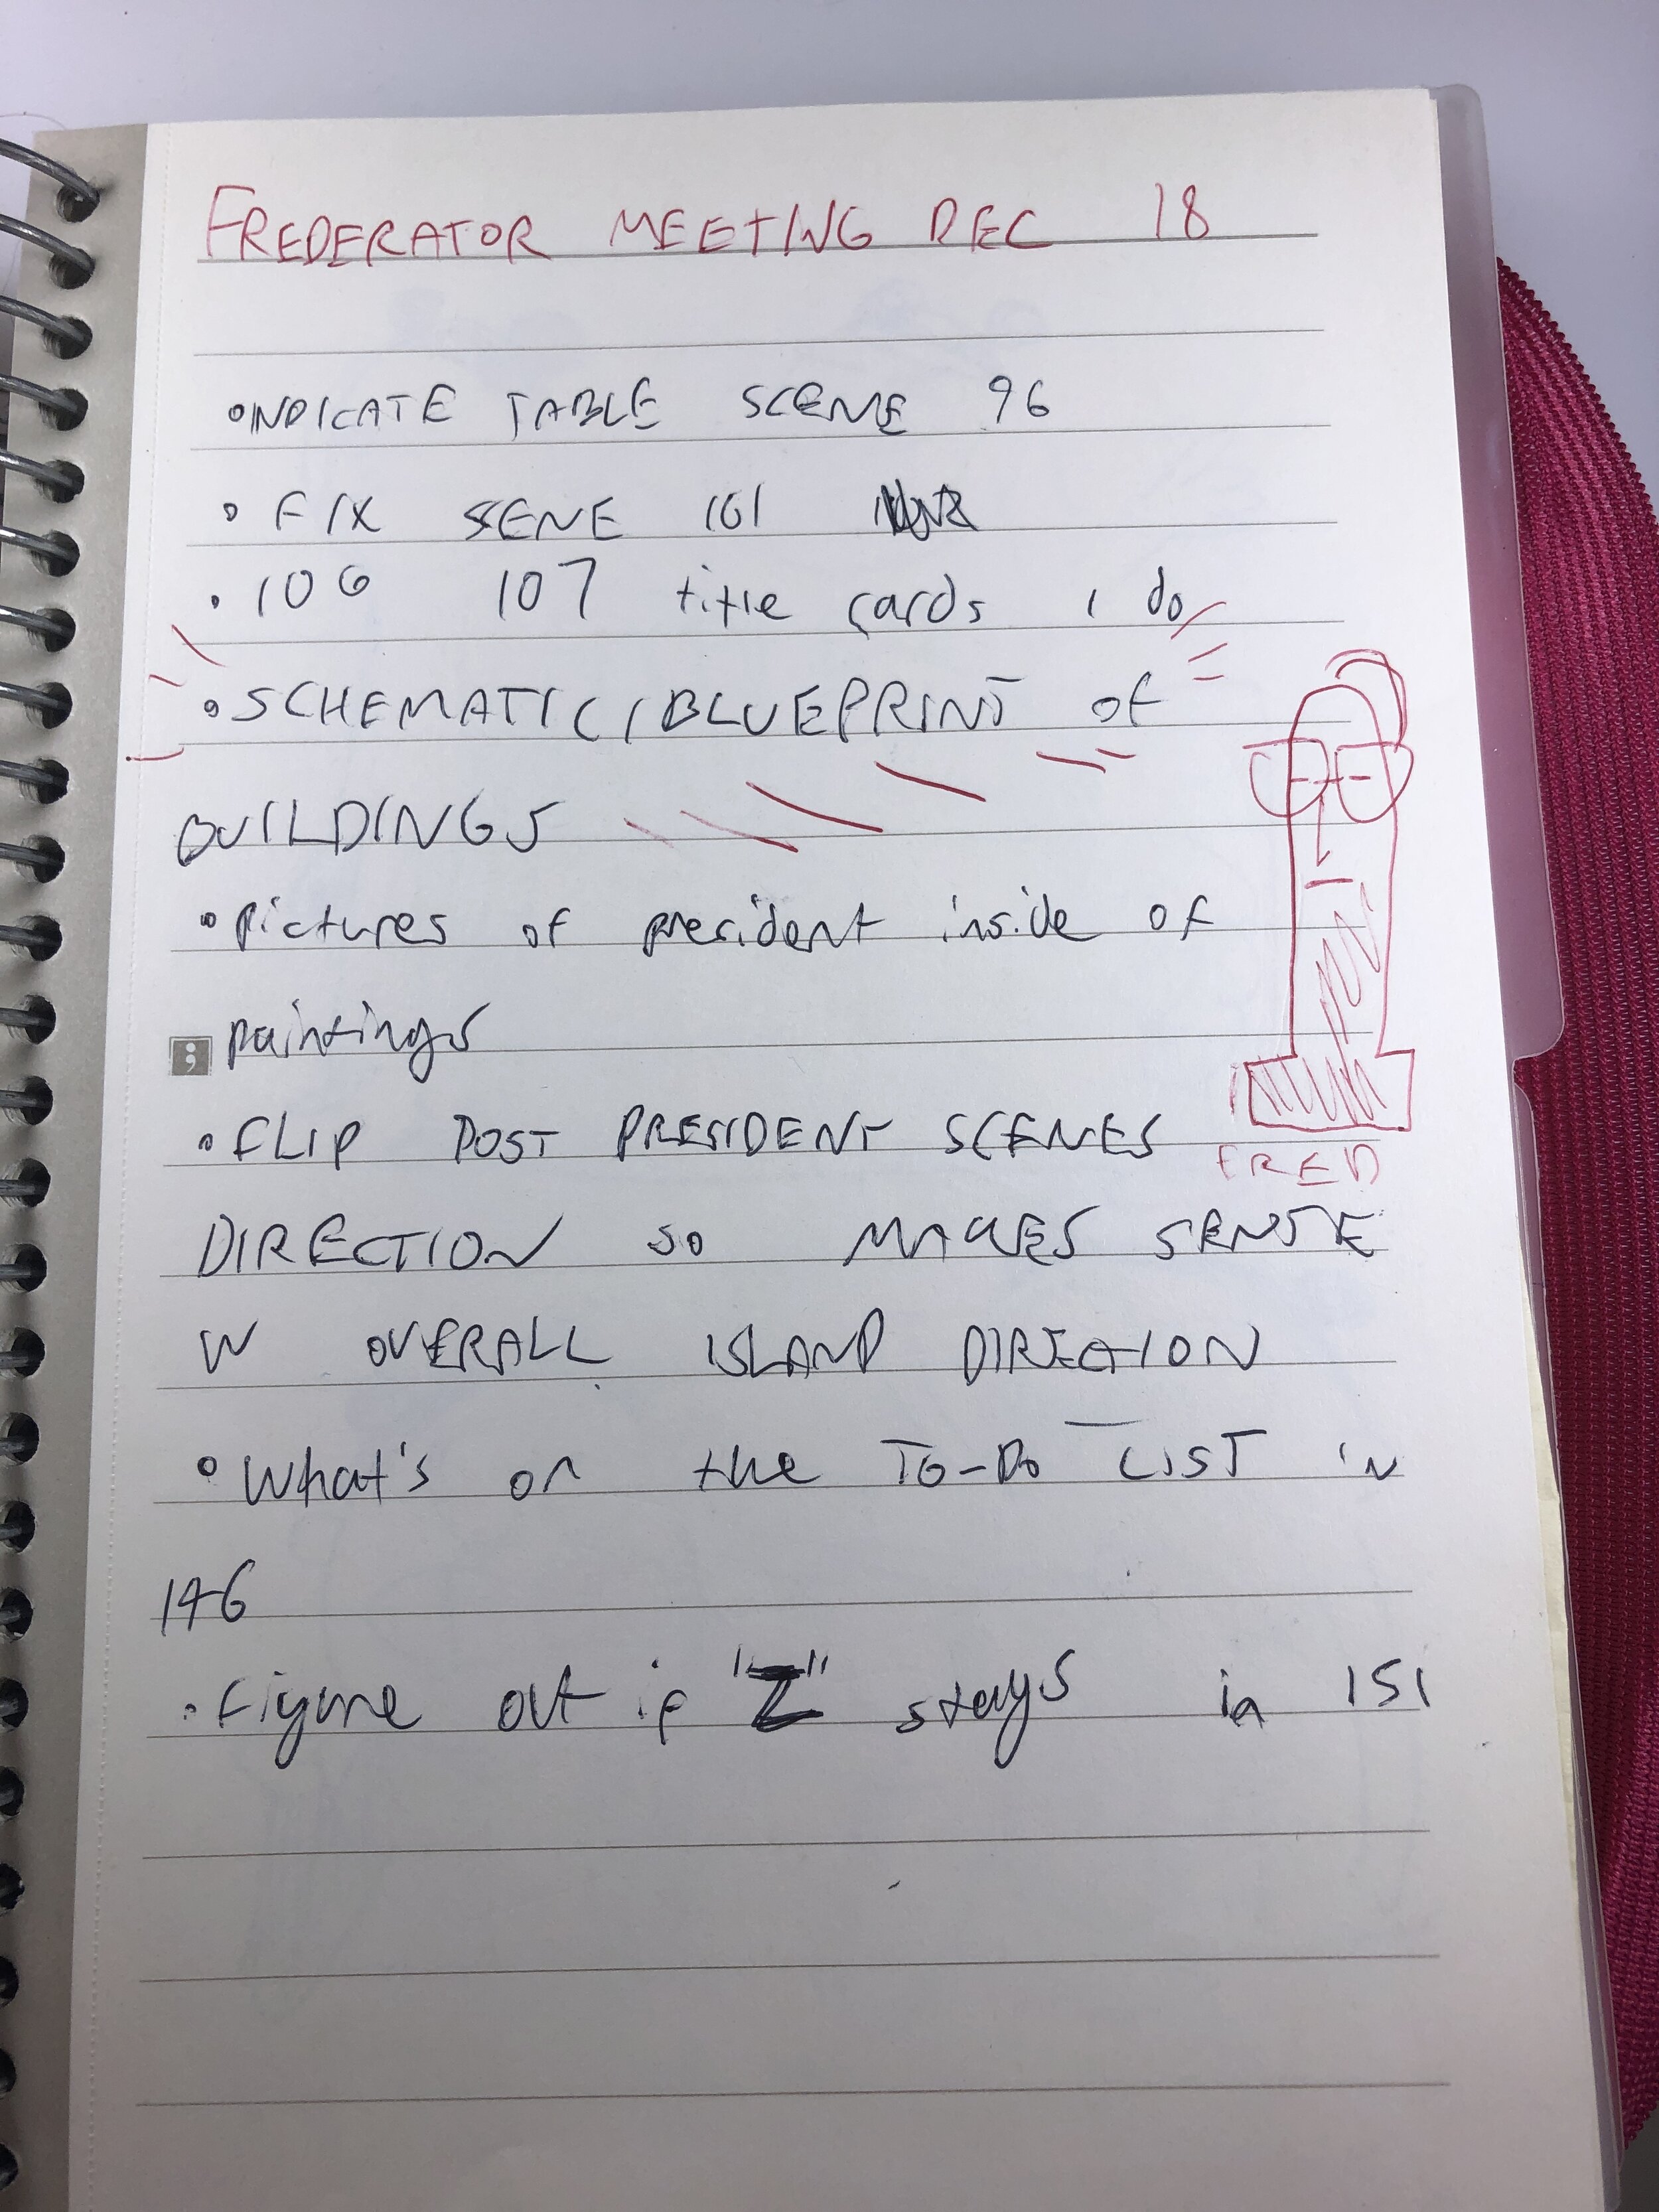 FREDERATOR MEETING DEC 18
• INDICATE TABLE SCENE 96
• FIX SENE 101
• 106 107 title cards I do
• SCHEMATIC/BLUEPRINT of
BUILDINGS
• pictures of president inside of
paintings
• FLIP POST PRESIDENT SCENES
FRED
DIRECTION so MAKES SENSE
W OVERALL ISLAND DIRECTION
• What's on the TO-DO LIST in
146
• Figure out if "Z" stays in 151